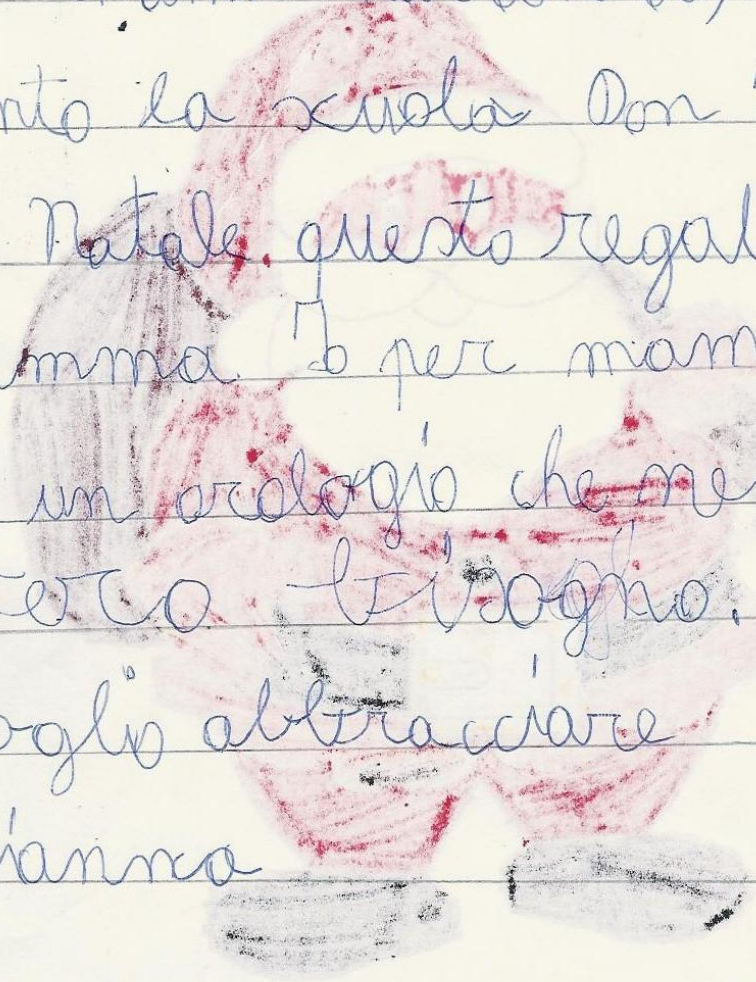 nto la scuola Don
Natale questo regal
mma. Io per mam
un orologio che ne
ero bisogno.
oglio abbracciare
ianna